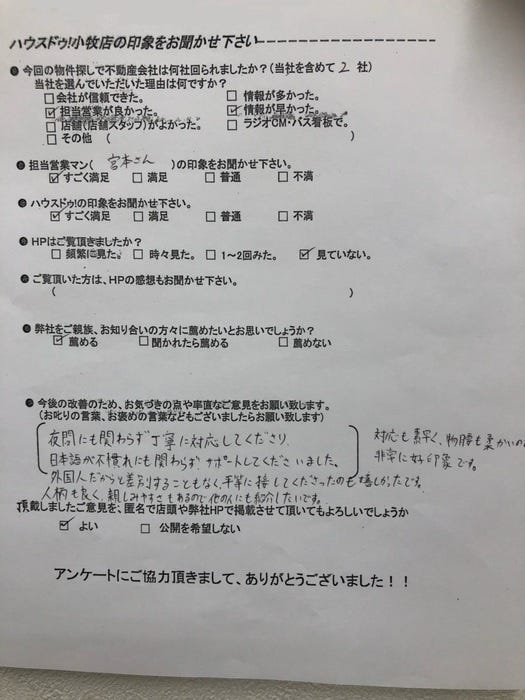 ハウスドゥ!小牧店の印象をお聞かせ下さい
今回の物件探しで不動産会社は何社回られましたか?(当社を含めて 2 社)
当社を選んでいただいた理由は何ですか?
□会社が信頼できた。 □ 情報が多かった。
☑ 担当営業が良かった。 ☑ 情報が早かった。
□ 店舗(店舗スタッフ)がよかった。 □ ラジオCM・バス看板で。
□ その他 ( )
担当営業マン( 宮本さん )の印象をお聞かせ下さい。
☑ すごく満足 □ 満足 □ 普通 □ 不満
ハウスドゥ!の印象をお聞かせ下さい。
☑ すごく満足 □ 満足 □ 普通 □ 不満
HPはご覧頂きましたか?
□ 頻繁に見た。 □ 時々見た。 □ 1〜2回みた。 ☑ 見ていない。
ご覧頂いた方は、HPの感想もお聞かせ下さい。
( )
弊社をご親族、お知り合いの方々に薦めたいとお思いでしょうか?
☑ 薦める □聞かれたら薦める □ 薦めない
今後の改善のため、お気づきの点や率直なご意見をお願い致します。
(お叱りの言葉、お褒めの言葉などもございましたらお願い致します)
夜間にも関わらず丁寧に対応してくださり
日本語が不慣れにも関わらず サポートしてくださいました。
外国人だからと差別することもなく、平等に接してくださったのも嬉しかったです。
人柄も良く、親しみやすさもあるので他の人にも紹介したいです。
対応も素早く、物腰も柔かいの
非常に好印象です。
頂戴しましたご意見を、匿名で店頭や弊社HPで掲載させて頂いてもよろしいでしょうか
☑ よい □ 公開を希望しない
アンケートにご協力頂きまして、ありがとうございました!!